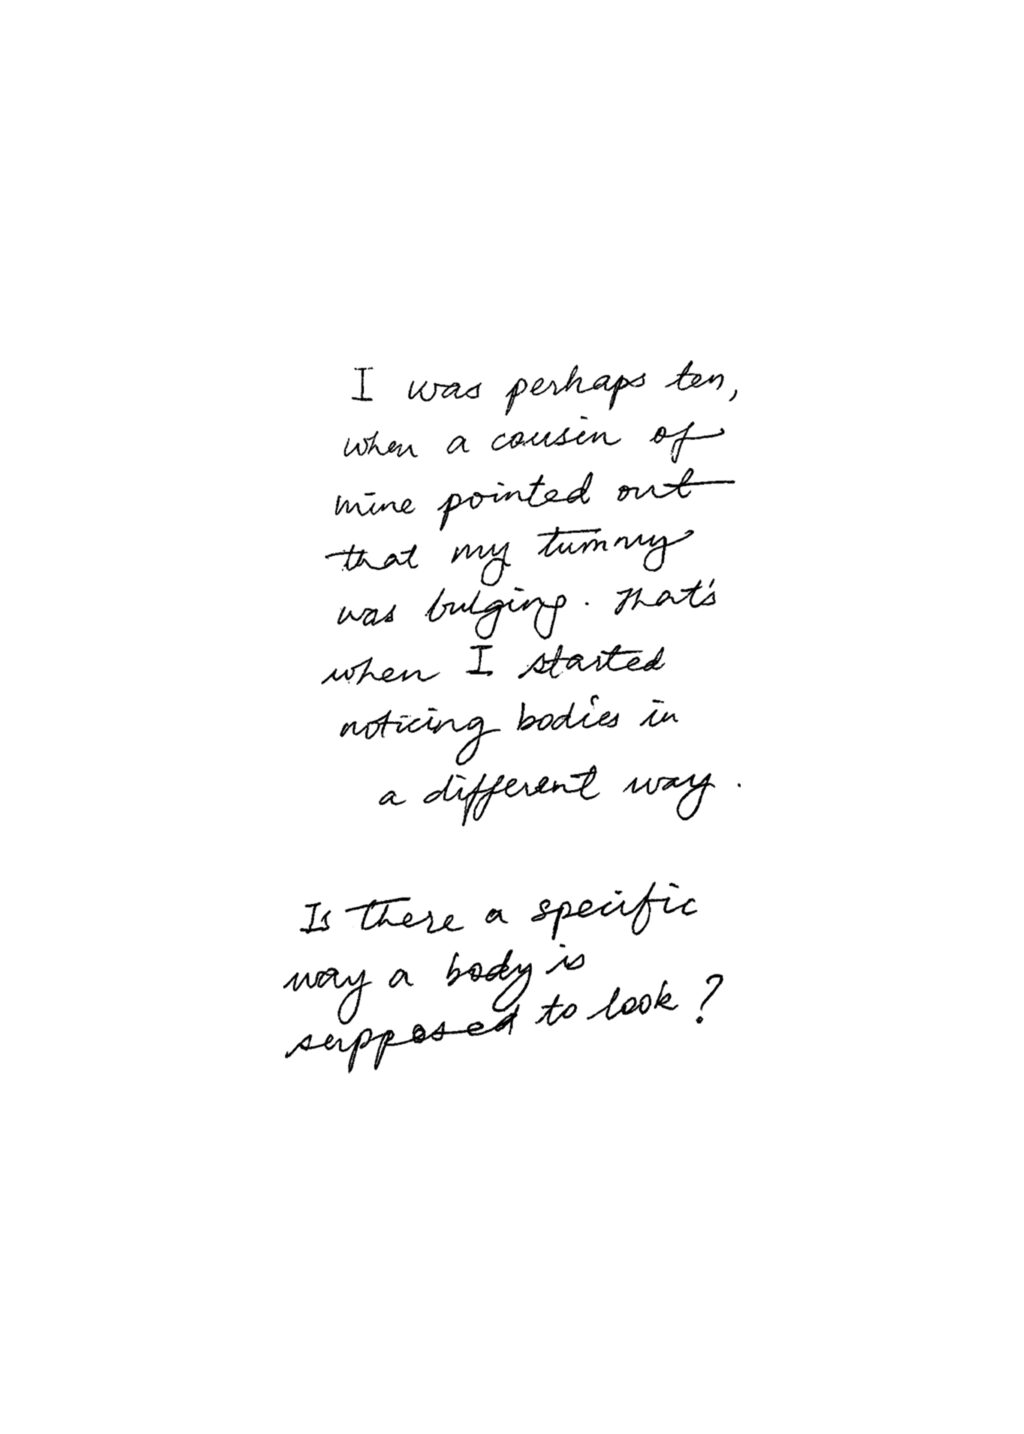 I was perhaps ten,
when a cousin of
mine pointed out
that my tummy
was bulging. That's
when I started
noticing bodies in
a different way.
Is there a specific
way a body is
supposed to look?